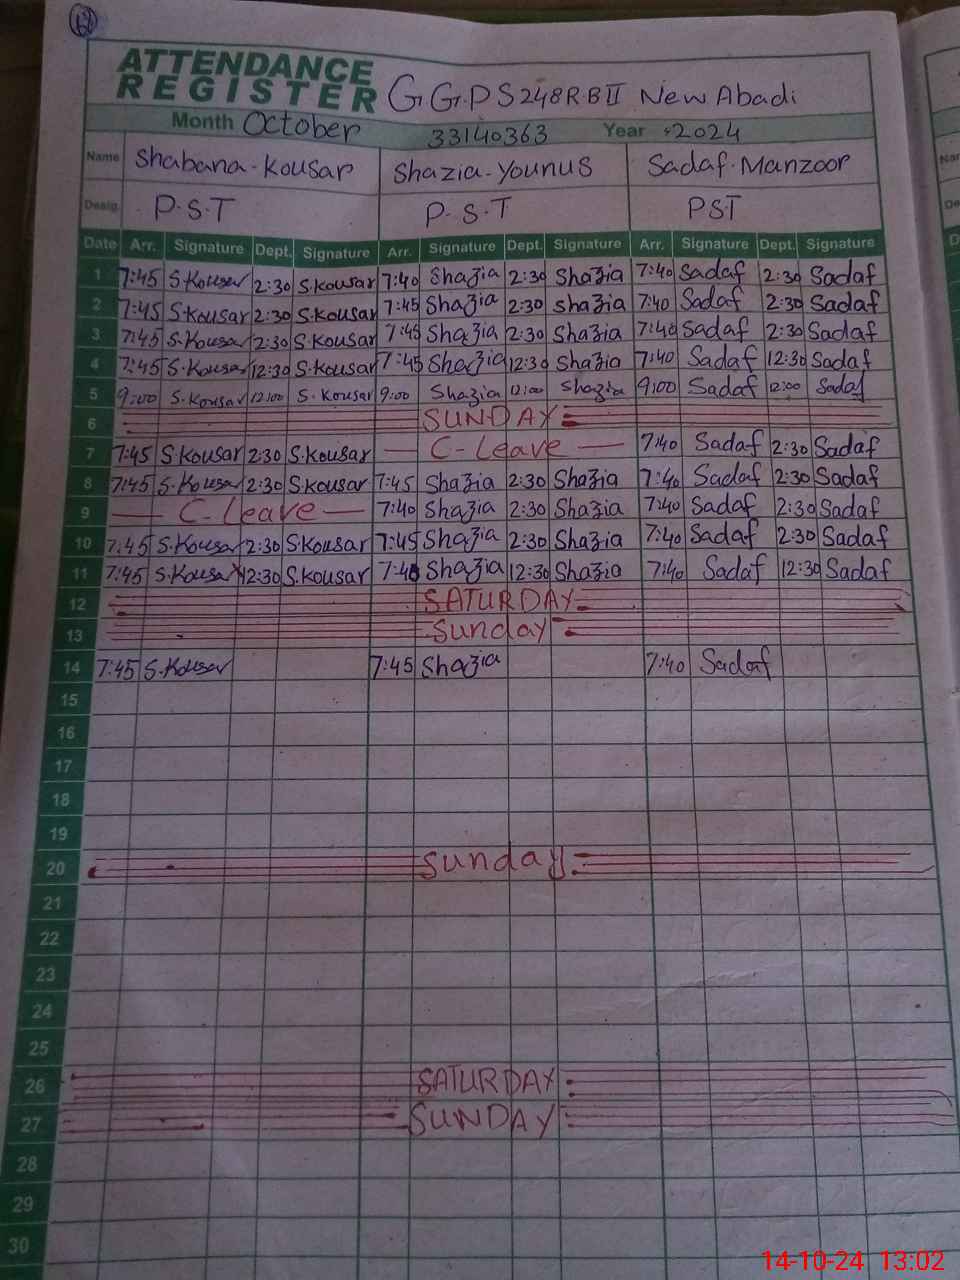 12
ATTENDANCE
REGISTER G.G.P S 248 R.B II New Abadi
Month October 33140363 Year 2024
Name Shabana-Kousar Shazia-Younus Sadaf-Manzoor
Desig. P.S.T P.S.T PST
Date Arr. Signature Dept. Signature Arr. Signature Dept. Signature Arr. Signature Dept. Signature
1 7:45 S.Kousar 2:30 S.Kousar 7:40 Shazia 2:30 Shazia 7:40 Sadaf 2:30 Sadaf
2 7:45 S.Kousar 2:30 S.Kousar 7:45 Shazia 2:30 Shazia 7:40 Sadaf 2:30 Sadaf
3 7:45 S.Kousar 2:30 S.Kousar 7:45 Shazia 2:30 Shazia 7:40 Sadaf 2:30 Sadaf
4 7:45 S.Kousar 12:30 S.Kousar 7:45 Shazia 12:30 Shazia 7:40 Sadaf 12:30 Sadaf
5 9:00 S.Kousar 12:00 S.Kousar 9:00 Shazia 12:00 Shazia 9:00 Sadaf 12:00 Sadaf
6 SUNDAY
7 7:45 S.Kousar 2:30 S.Kousar C-Leave 7:40 Sadaf 2:30 Sadaf
8 7:45 S.Kousar 2:30 S.Kousar 7:45 Shazia 2:30 Shazia 7:40 Sadaf 2:30 Sadaf
9 C-Leave 7:40 Shazia 2:30 Shazia 7:40 Sadaf 2:30 Sadaf
10 7:45 S.Kousar 2:30 S.Kousar 7:45 Shazia 2:30 Shazia 7:40 Sadaf 2:30 Sadaf
11 7:45 S.Kousar 12:30 S.Kousar 7:40 Shazia 12:30 Shazia 7:40 Sadaf 12:30 Sadaf
12 SATURDAY
13 Sunday
14 7:45 S.Kousar 7:45 Shazia 7:40 Sadaf
15
16
17
18
19
20 Sunday
21
22
23
24
25
26 SATURDAY
27 SUNDAY
28
29
30
14-10-24 13:02